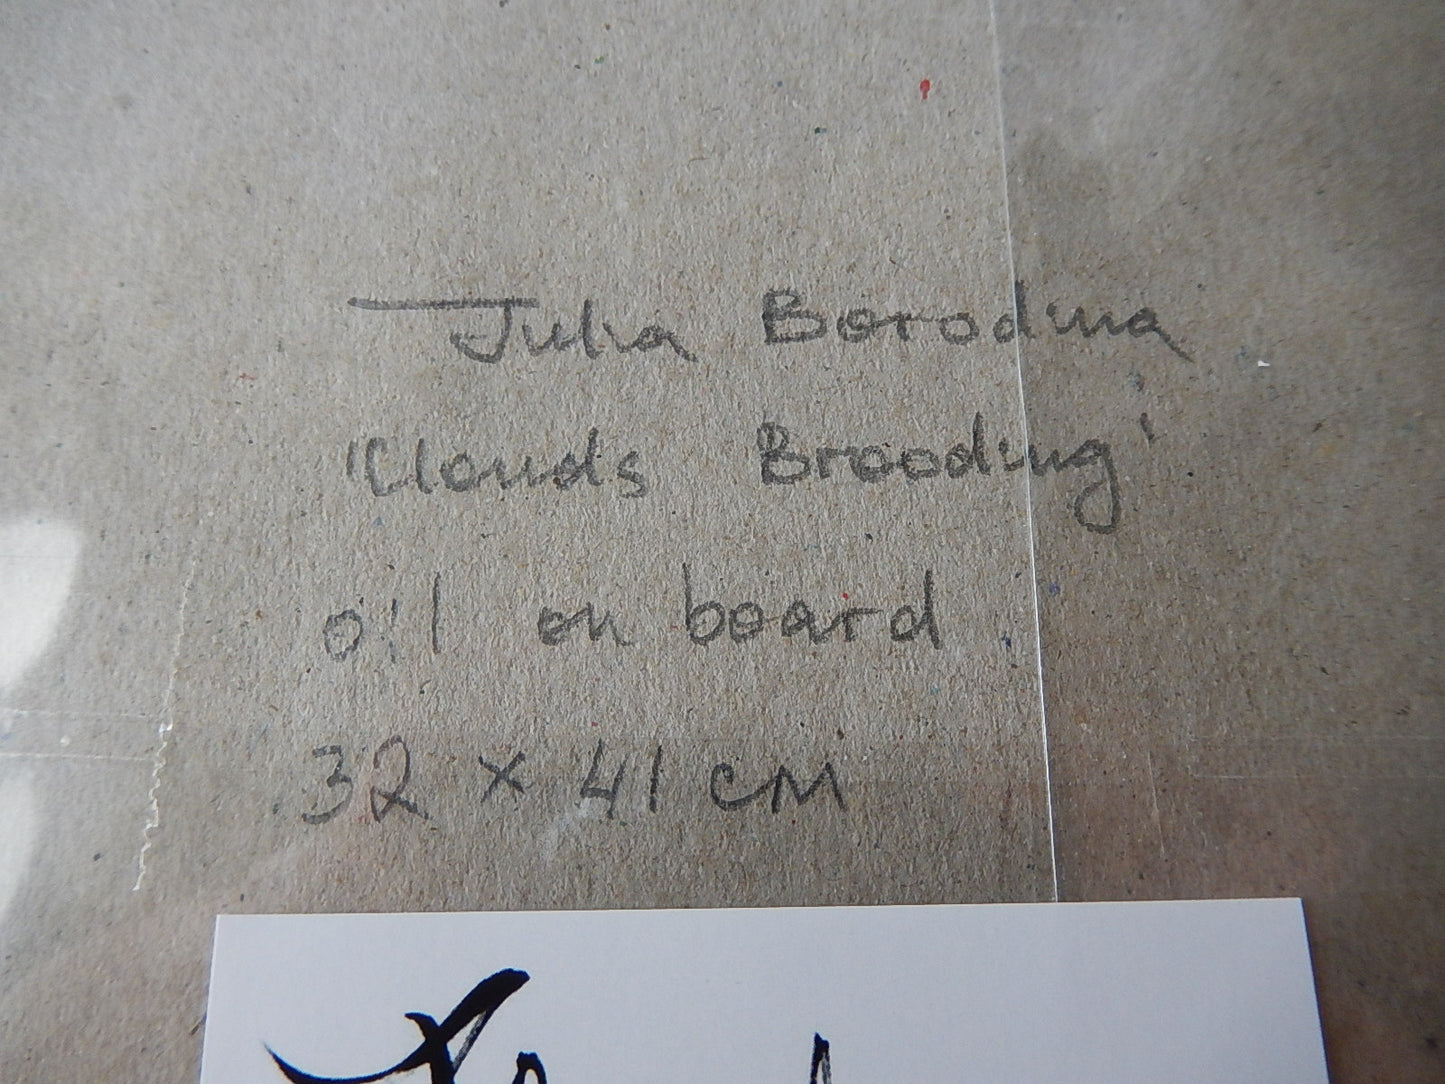 Julia Borodina
'Clouds Brooding'
oil on board
32 x 41 cm